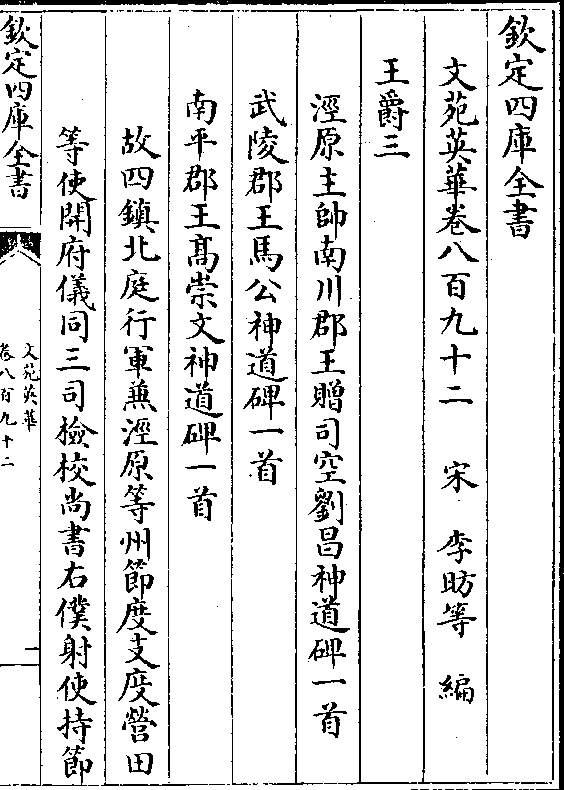 欽定四庫全書
文苑英華卷八百九十二 宋 李昉等 編
王爵三
涇原主帥南川郡王贈司空劉昌神道碑一首
武陵郡王馬公神道碑一首
南平郡王髙崇文神道碑一首
故四鎮北庭行軍兼涇原等州節度支度營田
等使開府儀同三司檢校尚書右僕射使持節
欽定四庫全書
文苑英華
卷八百九十二
一